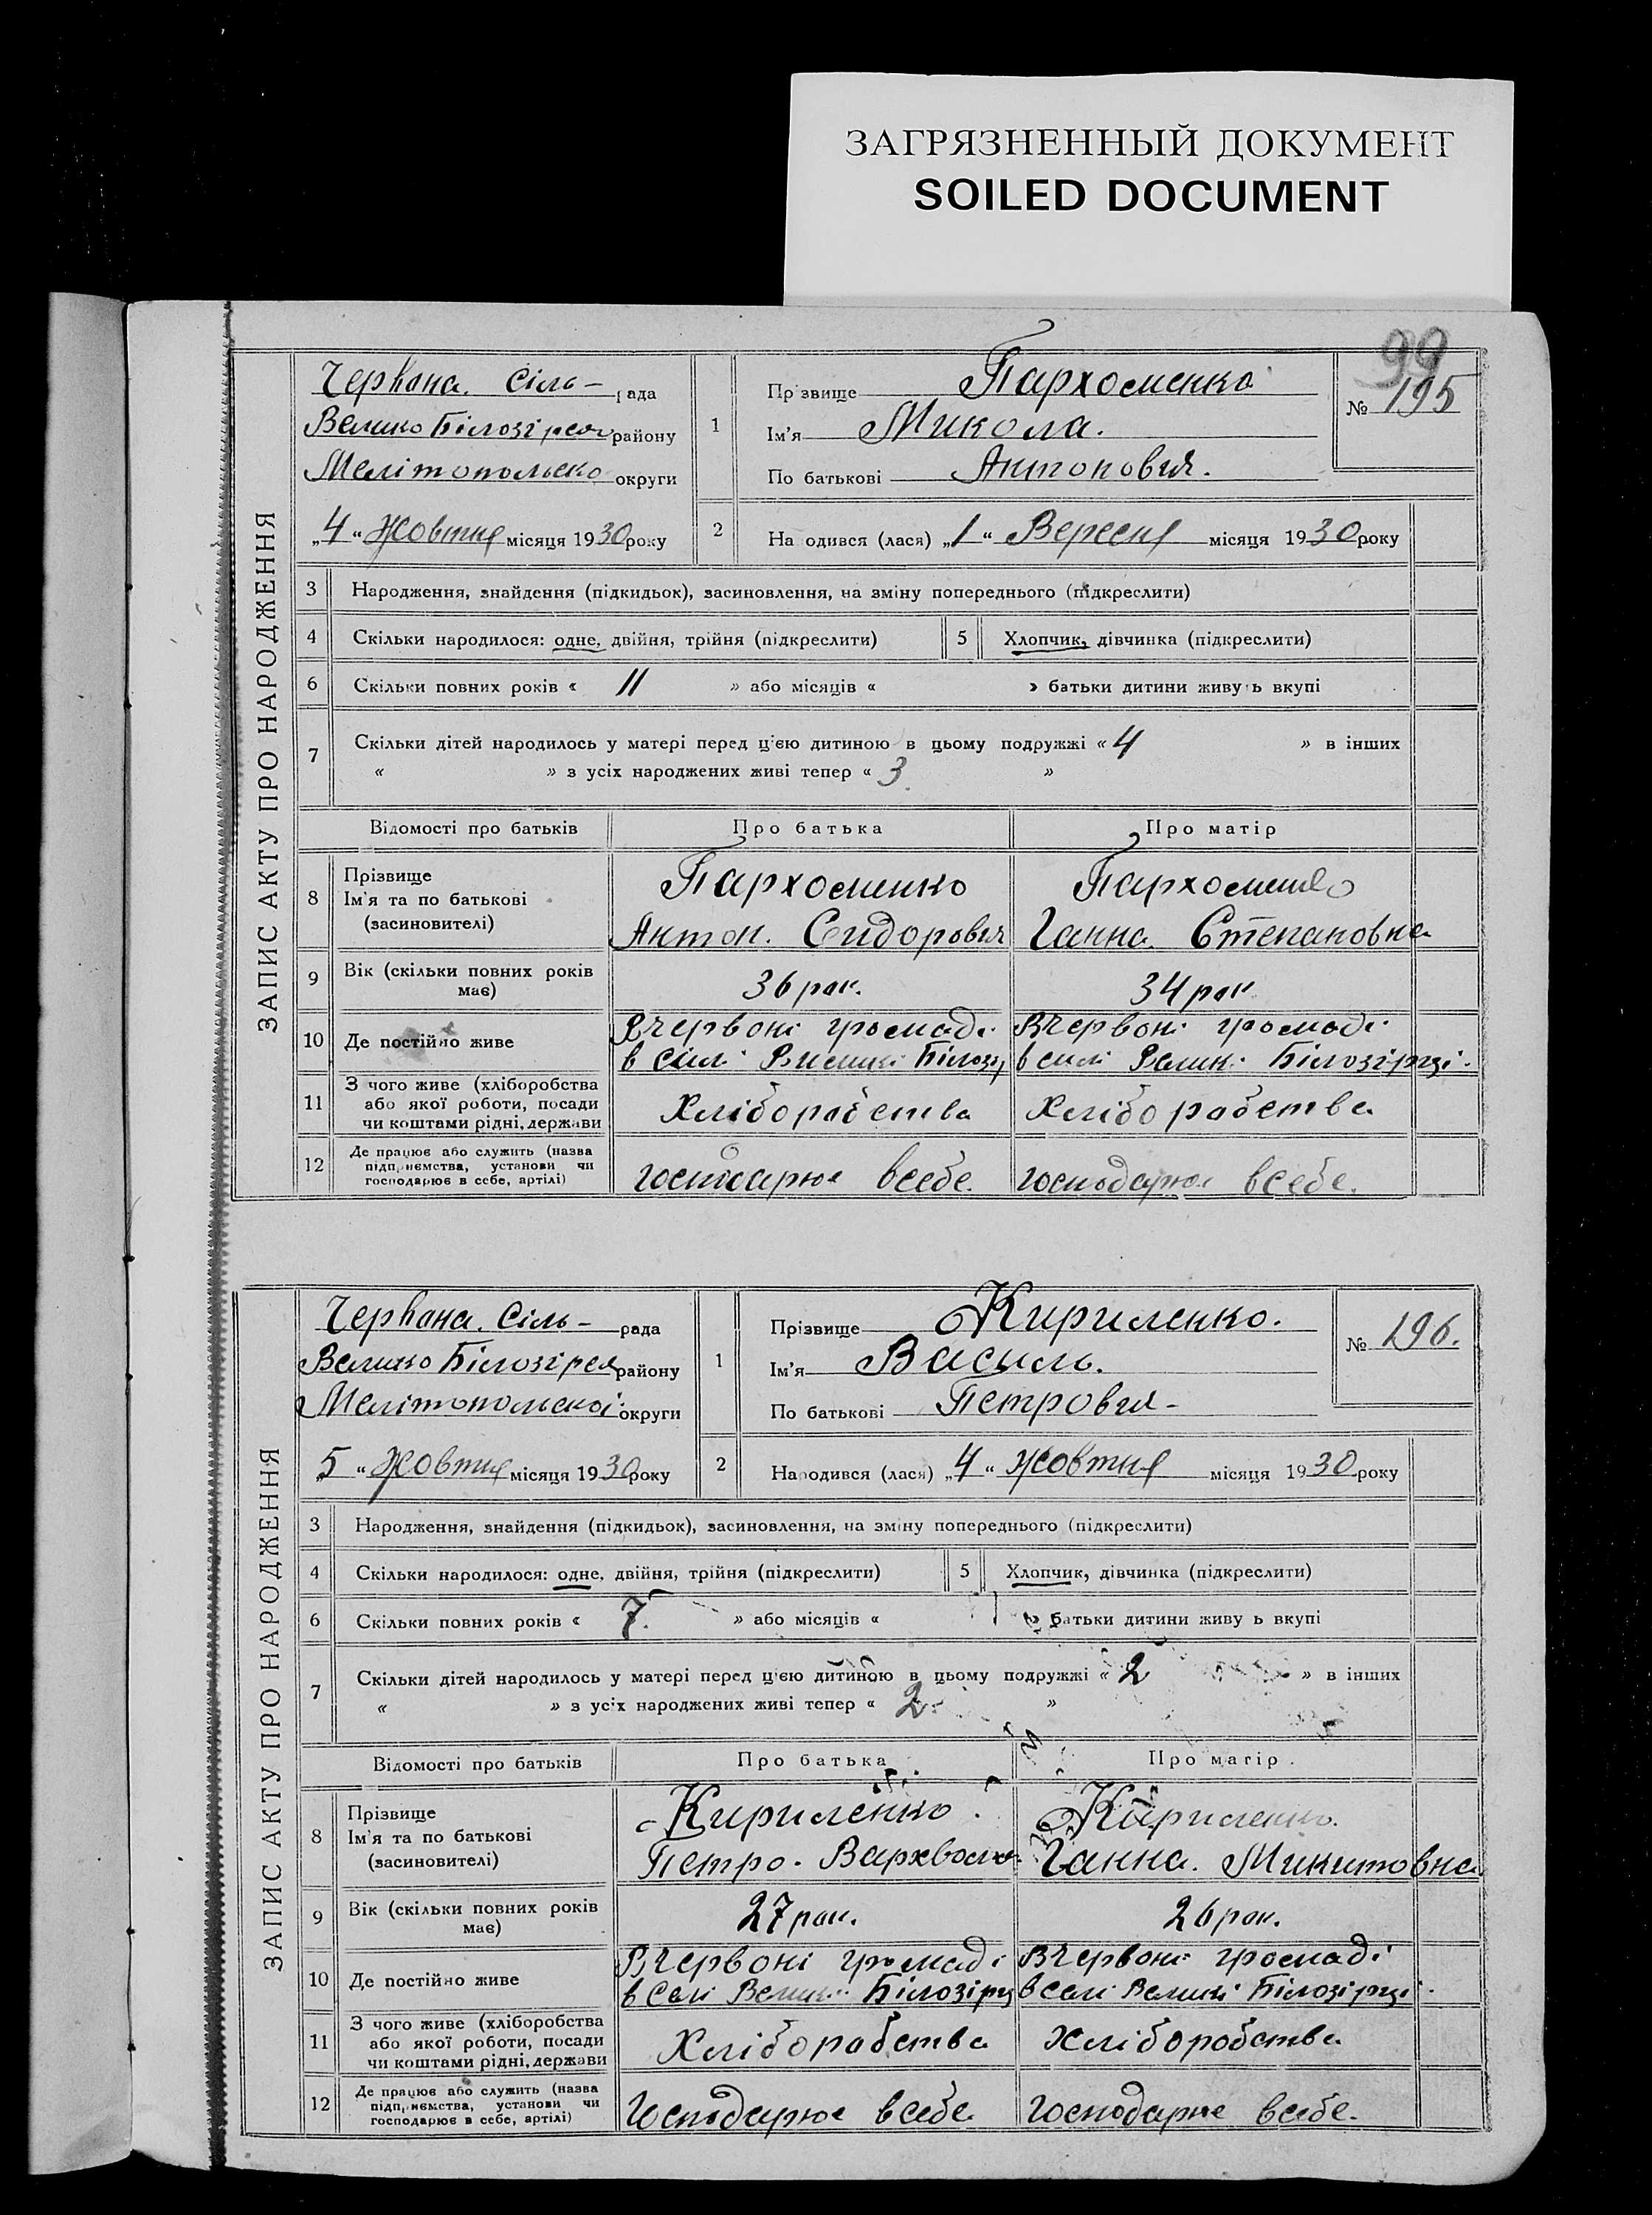 ЗАГРЯЗНЕННЫЙ ДОКУМЕНТ
SOILED DOCUMENT
99
ЗАПИС АКТУ ПРО НАРОДЖЕННЯ
Червона. Сіль- рада
Велико Білозірся району
Мелітопольско округи
„4“ Жовтня місяця 1930 року
1
Прізвище Пархоменко
Ім'я Микола.
По батькові Антонович.
№ 195
2 Народився (лася) „1“ Вересня місяця 1930 року
3 Народження, знайдення (підкидьок), засиновлення, на зміну попереднього (підкреслити)
4 Скільки народилося: одне, двійня, трійня (підкреслити) 5 Хлопчик, дівчинка (підкреслити)
6 Скільки повних років « 11 » або місяців « » батьки дитини живуть вкупі
7 Скільки дітей народилось у матері перед цією дитиною в цьому подружжі « 4 » в інших
« » з усіх народжених живі тепер « 3 »
Відомості про батьків Про батька Про матір
8 Прізвище
Ім'я та по батькові
(засиновителі)
Пархоменко
Антон. Сидорович
Пархоменко
Ганна. Степановна
9 Вік (скільки повних років
має)
36 рок.
34 рок
10 Де постійно живе
Вчервоні громаді
в селі Велики Білозір
Вчервоні громаді
в селі Велик. Білозірці.
11 З чого живе (хліборобства
або якої роботи, посади
чи коштами рідні, держави
Хліборабства
Хліборабства
12 Де працює або служить (назва
підприємства, установи чи
господарює в себе, артілі)
Господарює всебе.
Господарює всебе.
ЗАПИС АКТУ ПРО НАРОДЖЕННЯ
Червона. Сіль- рада
Велико Білозірся району
Мелітопольскої округи
„5“ Жовтня місяця 1930 року
1
Прізвище Кириленко.
Ім'я Василь.
По батькові Петрович-
№ 196.
2 Народився (лася) „4“ Жовтня місяця 1930 року
3 Народження, знайдення (підкидьок), засиновлення, на зміну попереднього (підкреслити)
4 Скільки народилося: одне, двійня, трійня (підкреслити) 5 Хлопчик, дівчинка (підкреслити)
6 Скільки повних років « 7. » або місяців « » батьки дитини живуть вкупі
7 Скільки дітей народилось у матері перед цією дитиною в цьому подружжі « 2 » в інших
« » з усіх народжених живі тепер « 2. »
Відомості про батьків Про батька Про матір
8 Прізвище
Ім'я та по батькові
(засиновителі)
Кириленко.
Петро.
Кириленко.
Ганна. Микитовна
9 Вік (скільки повних років
має)
27 рок.
26 рок.
10 Де постійно живе
Вчервоні громаді
в Селі Велики Білозірц
Вчервоні громаді
в Селі Велики Білозірці.
11 З чого живе (хліборобства
або якої роботи, посади
чи коштами рідні, держави
Хліборабства
Хліборобства
12 Де працює або служить (назва
підприємства, установи чи
господарює в себе, артілі)
Господарює всебе
Господарює всебе.